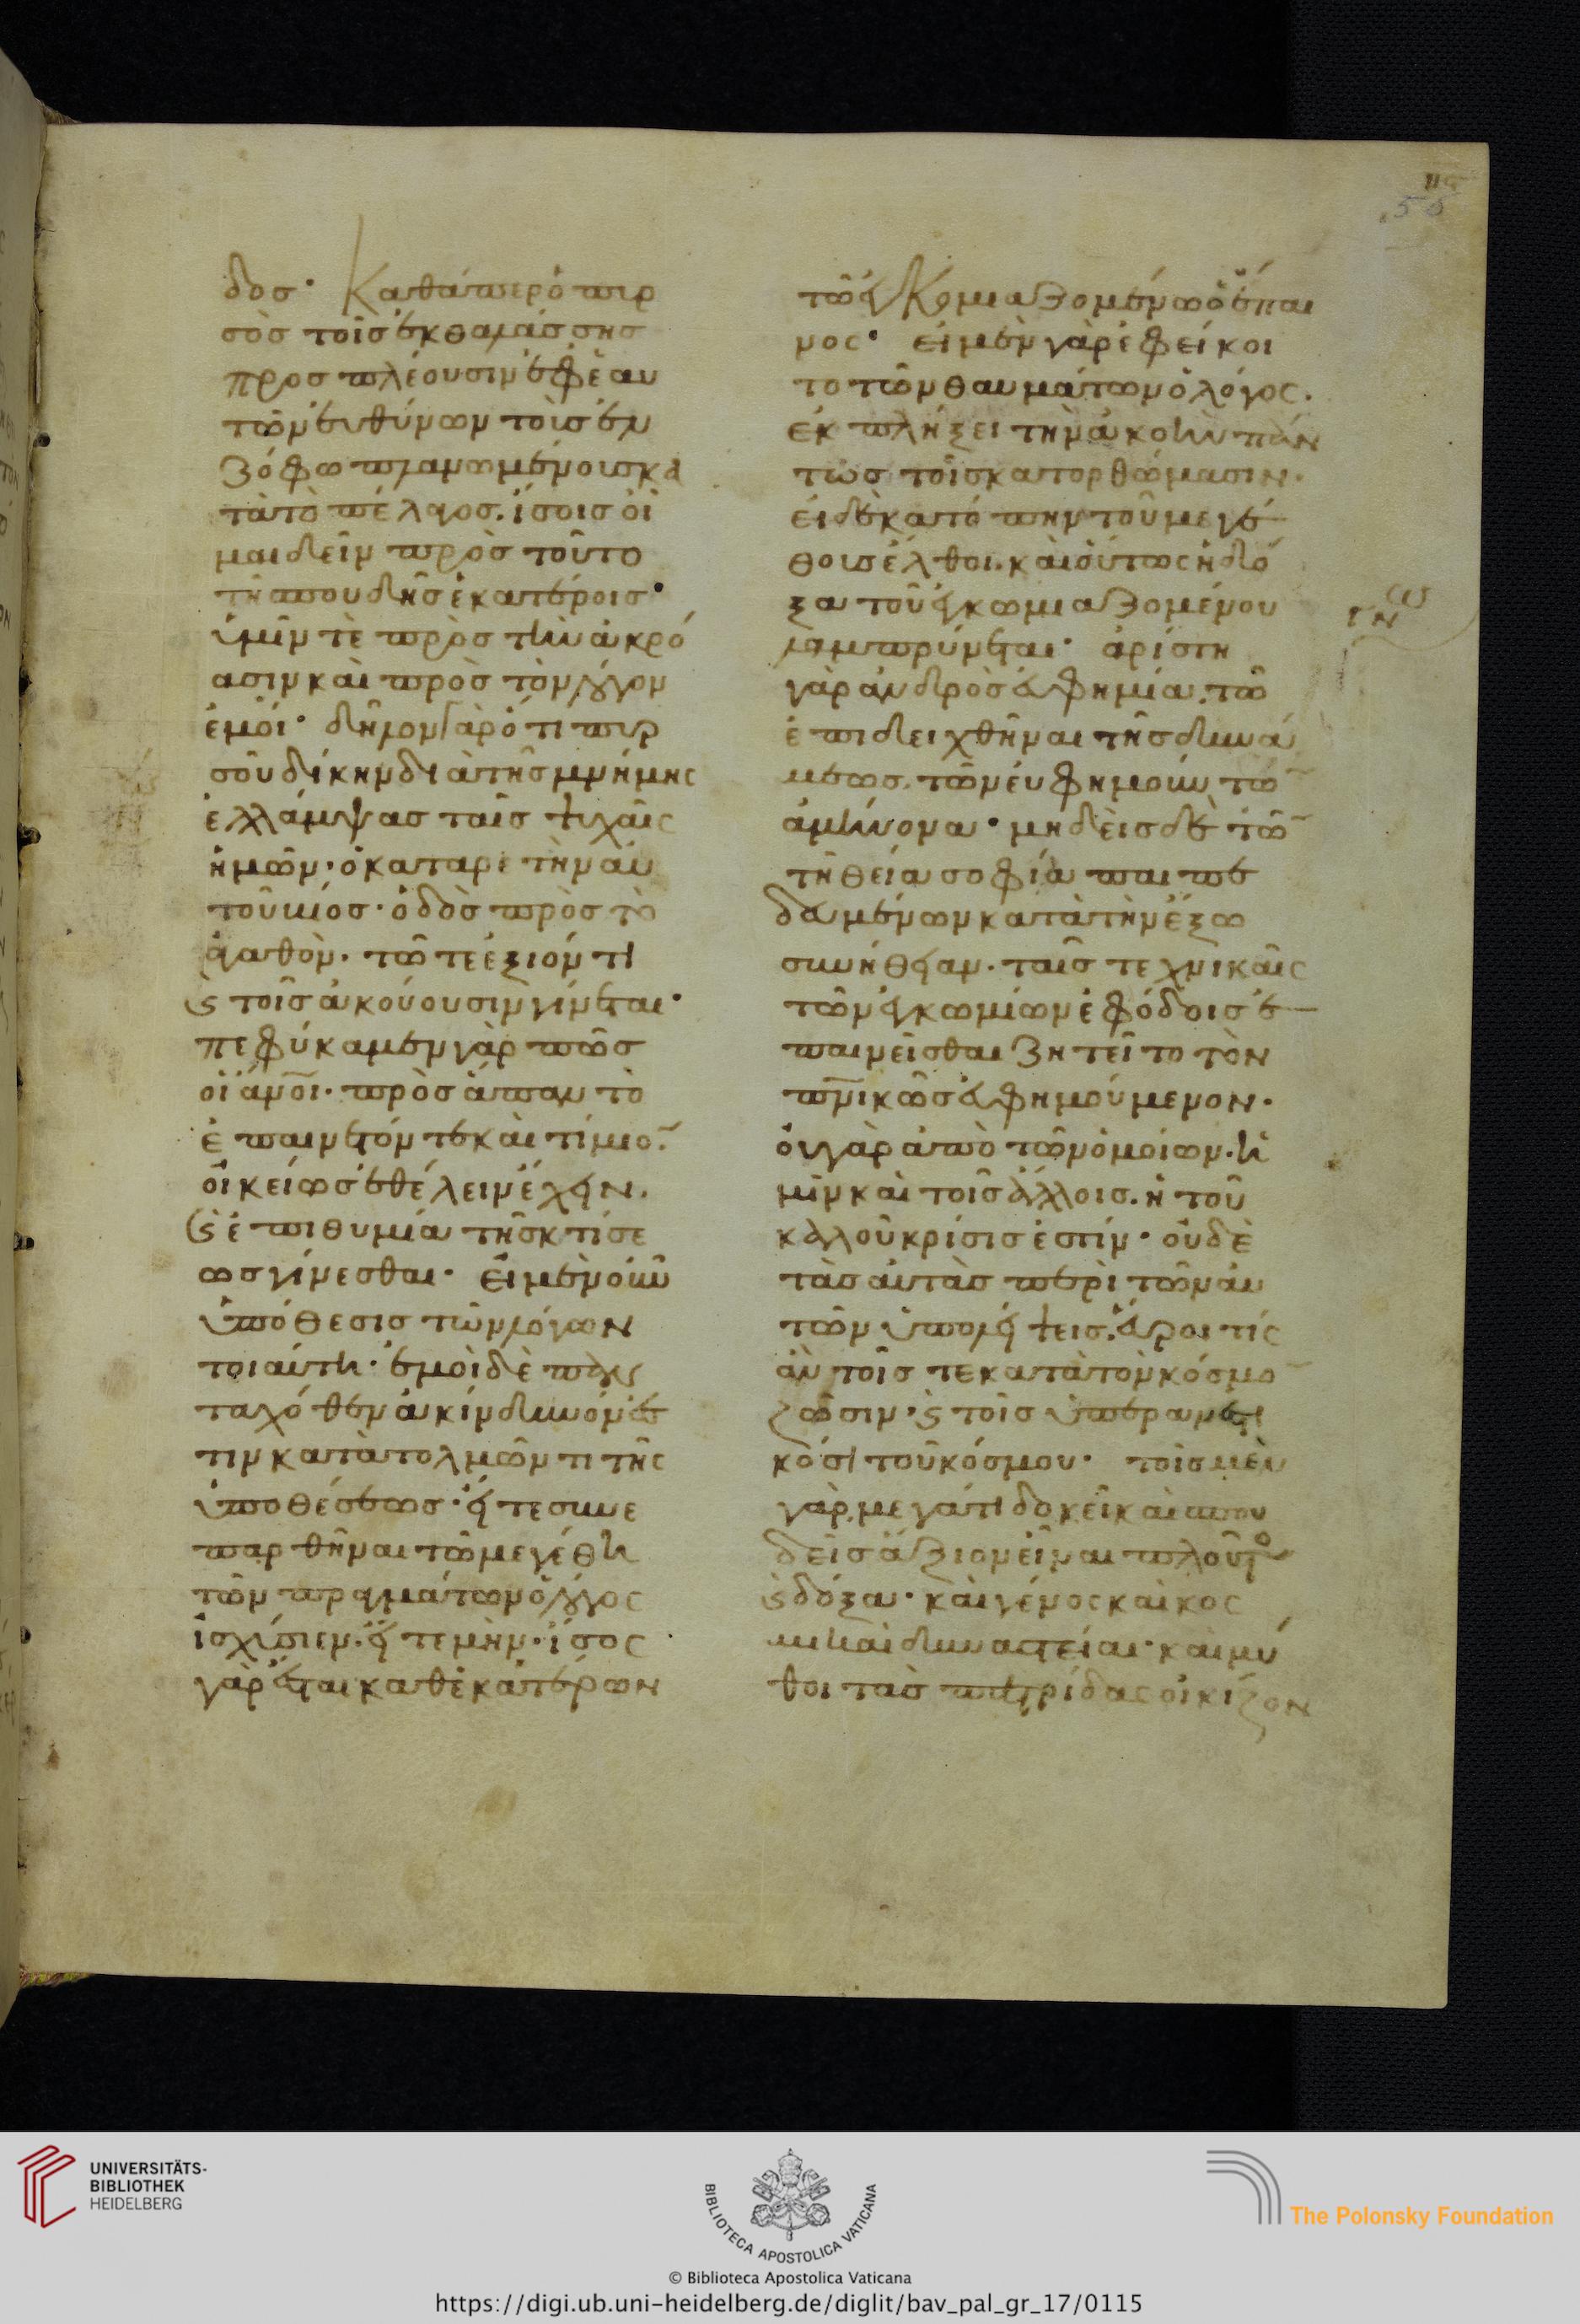 δος· Καθάπερ ὁ πυρ
σὸς τοῖς ἐκ θαλάσσης
προσπλέουσιν ἐφ ἑαυ
τὸν εὐθύνων τοὺς ἐν
ζόφω πλανωμένους κα
τὰ τὸ πέλαγος. ἴσοις οἶ
μαι δεῖν πρὸς τοῦτο
τῆ σπουδῆς ἑκατέροις·
ὑμῖν τὲ πρὸς τὴν ἀκρό
ασιν καὶ πρὸς τὸν λόγον
ἐμοί· δῆλον γὰρ ὅτι πυρ
σοῦ δίκην διὰ τῆς μνήμης
ἐλλάμψας ταῖς ψυχαῖς
ἡμῶν· ὁ κατ αρετὴν αὐ
τοῦ βίος· ὁδὸς πρὸς τὸ
ἀγαθὸν· τῶ τε ἐξιόντι
ϛ τοῖς ἀκούουσιν γίνεται·
πεφύκαμεν γὰρ πῶς
οἱ ἄνοι· πρὸς ἅπαν τὸ
ἐπαινετόν τε καὶ τίμιο̅
οἰκείως ἐθέλειν ἔχειν.
ϛ ἐπιθυμία τῆς κτίσε
ως γίνεσθαι· Εἰ μὲν οὖν
ὑπόθεσις τῶν λόγων
τοιαύτη· ἐμοὶ δὲ παν
ταχόθεν ἀκίνδυνόν ἐσ
τιν κατατολμῶντι τῆς
ὑποθέσεως· εἴ τε συνε
παρθῆναι τῶ μεγέθει
τῶν πραγμάτων ὁ λόγος
ἰσχύσιεν· εἴ τε μὴν· ἴσος
γὰρ ἔσται καθ ἑκατέρων
τῶ ἐγκομιαζομένω ὁ ἔπαι
νος· εἰ μὲν γὰρ ἐφείκοι
το τῶν θαυμάτων ὁ λόγος.
ἐκπλήξει τὴν ἀκοὴν πάν
τως τοῖς κατορθώμασιν.
εἰ δὲ κατόπην τοῦ μεγέ
θους ἔλθοι. καὶ οὕτως ἡ δό
ξα τοῦ ἐγκωμιαζομένου
λαμπρύνεται· ἀρίστη
γὰρ ἀνδρὸς εὐφημία. τῶ
ἐπιδειχθῆναι τῆς δυνά
μεως. τῶν ἐυφημούντω̅
ἀμείνονα· μηδεὶς δὲ τῶ̅
τῆ θεία σοφία παιπε
δευμένων κατὰ τὴν ἔξω
συνήθειαν. ταῖς τεχνικαῖς
τῶν ἐγκωμίων ἐφόδοις ἐ
παινεῖσθαι ζητείτο τὸν
πνικῶς εὐφημούμενον.
οὐ γὰρ ἀπὸ τῶν ὁμοίων. ἡ
μῖν καὶ τοῖς ἄλλοις. ἡ τοῦ
καλοῦ κρίσις ἐστίν· οὐδὲ
τὰς αὐτὰς περὶ τῶν αὐ
τῶν ὑπολήψεις. εὕροι τίς
ἀν τοῖς τε κατὰ τὸν κόσμο̅
ζῶσιν· ϛ τοῖς ὑπεραναβε
κόσι τοῦ κόσμου· τοῖς μὲν
γὰρ, μέγα τί δοκεῖ καὶ σπου
δεῖς ἄξιον εἶναι πλοῦτο
ϛ δόξα· καὶ γένος καὶ κοσ
μικαὶ δυναστείαι· καὶ μύ
θοι τὰς πατρίδας οἰκίζον
UNIVERSITÄTS-
BIBLIOTHEK
HEIDELBERG
BIBLIOTECA APOSTOLICA VATICANA
The Polonsky Foundation
© Biblioteca Apostolica Vaticana
https://digi.ub.uni-heidelberg.de/diglit/bav_pal_gr_17/0115